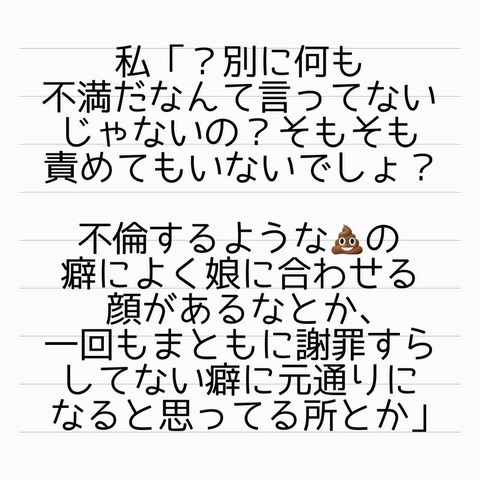 私「？別に何も
不満だなんて言ってない
じゃないの？そもそも
責めてもいないでしょ？
不倫するような💩の
癖によく娘に合わせる
顔があるなとか、
一回もまともに謝罪すら
してない癖に元通りに
なると思ってる所とか」